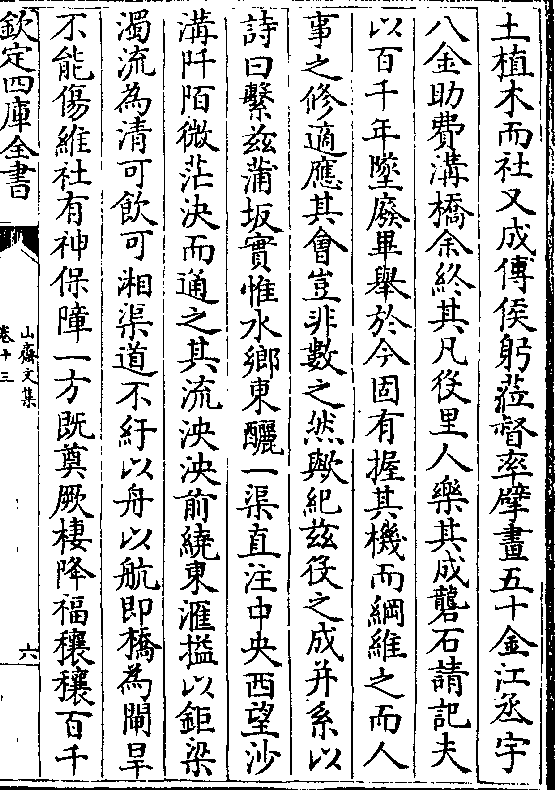 土植木而社又成傅侯躬蒞督率擘畫五十金江丞宇
八金助費溝橋余終其凡役里人樂其成礱石請記夫
以百千年墜廢畢舉於今固有握其機而綱維之而人
事之修適應其會豈非數之然歟紀茲役之成并系以
詩曰繫茲蒲坂實惟水鄉東釃一渠直注中央西望沙
溝阡陌微茫決而通之其流泱泱前繞東滙搤以鉅梁
濁流為清可飲可湘渠道不紆以舟以航即橋為閘旱
不能傷維社有神保障一方既奠厥棲降福穰穰百千
欽定四庫全書
山齋文集
卷十三
六